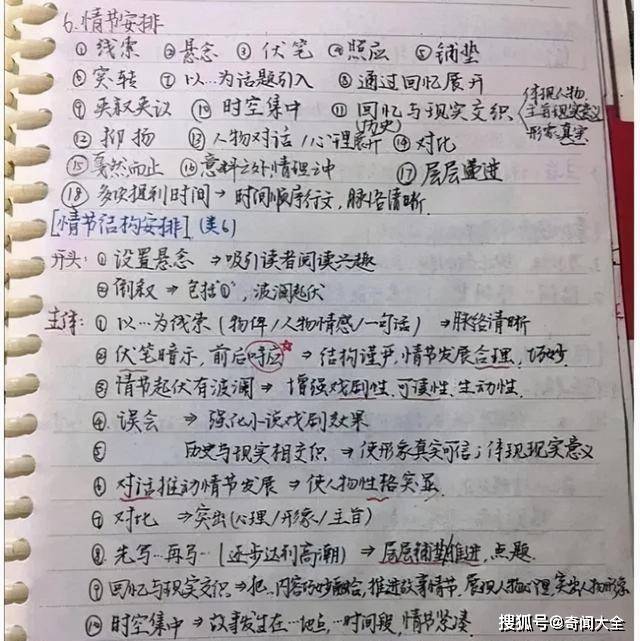 6.情节安排
①线索 ②悬念 ③伏笔 ④照应 ⑤铺垫
⑥突转 ⑦以…为话题引入 ⑧通过回忆展开
⑨夹叙夹议 ⑩时空集中 ⑪回忆与现实交织(历史) 体现人物 主旨现实意义 形象真实
⑫抑扬 ⑬人物对话/心理展开 ⑭对比
⑮戛然而止 ⑯意料之外情理之中 ⑰层层递进
⑱多次提到时间→时间顺序行文,脉络清晰.
[情节结构安排](类6)
开头:①设置悬念→吸引读者阅读兴趣
②倒叙→包括①,波澜起伏
主体:①以…为线索(物件/人物情感/一句话)→脉络清晰
②伏笔暗示,前后呼应→结构谨严,情节发展合理、巧妙
③情节起伏有波澜→增强戏剧性、可读性、生动性.
④误会→强化小说戏剧效果
⑤历史与现实相交织→使形象真实可信;体现现实意义
⑥对话推动情节发展→使人物性格突显.
⑦对比→突出(心理/形象/主旨)
⑧先写…再写…(逐步达到高潮)→层层铺垫推进,点题.
⑨回忆与现实交织→把…内容巧妙融合,推进故事情节,展现人物心理,突出人物形象
⑩时空集中→故事发生在…地点,…时间段,情节紧凑
搜狐号@奇闻大全